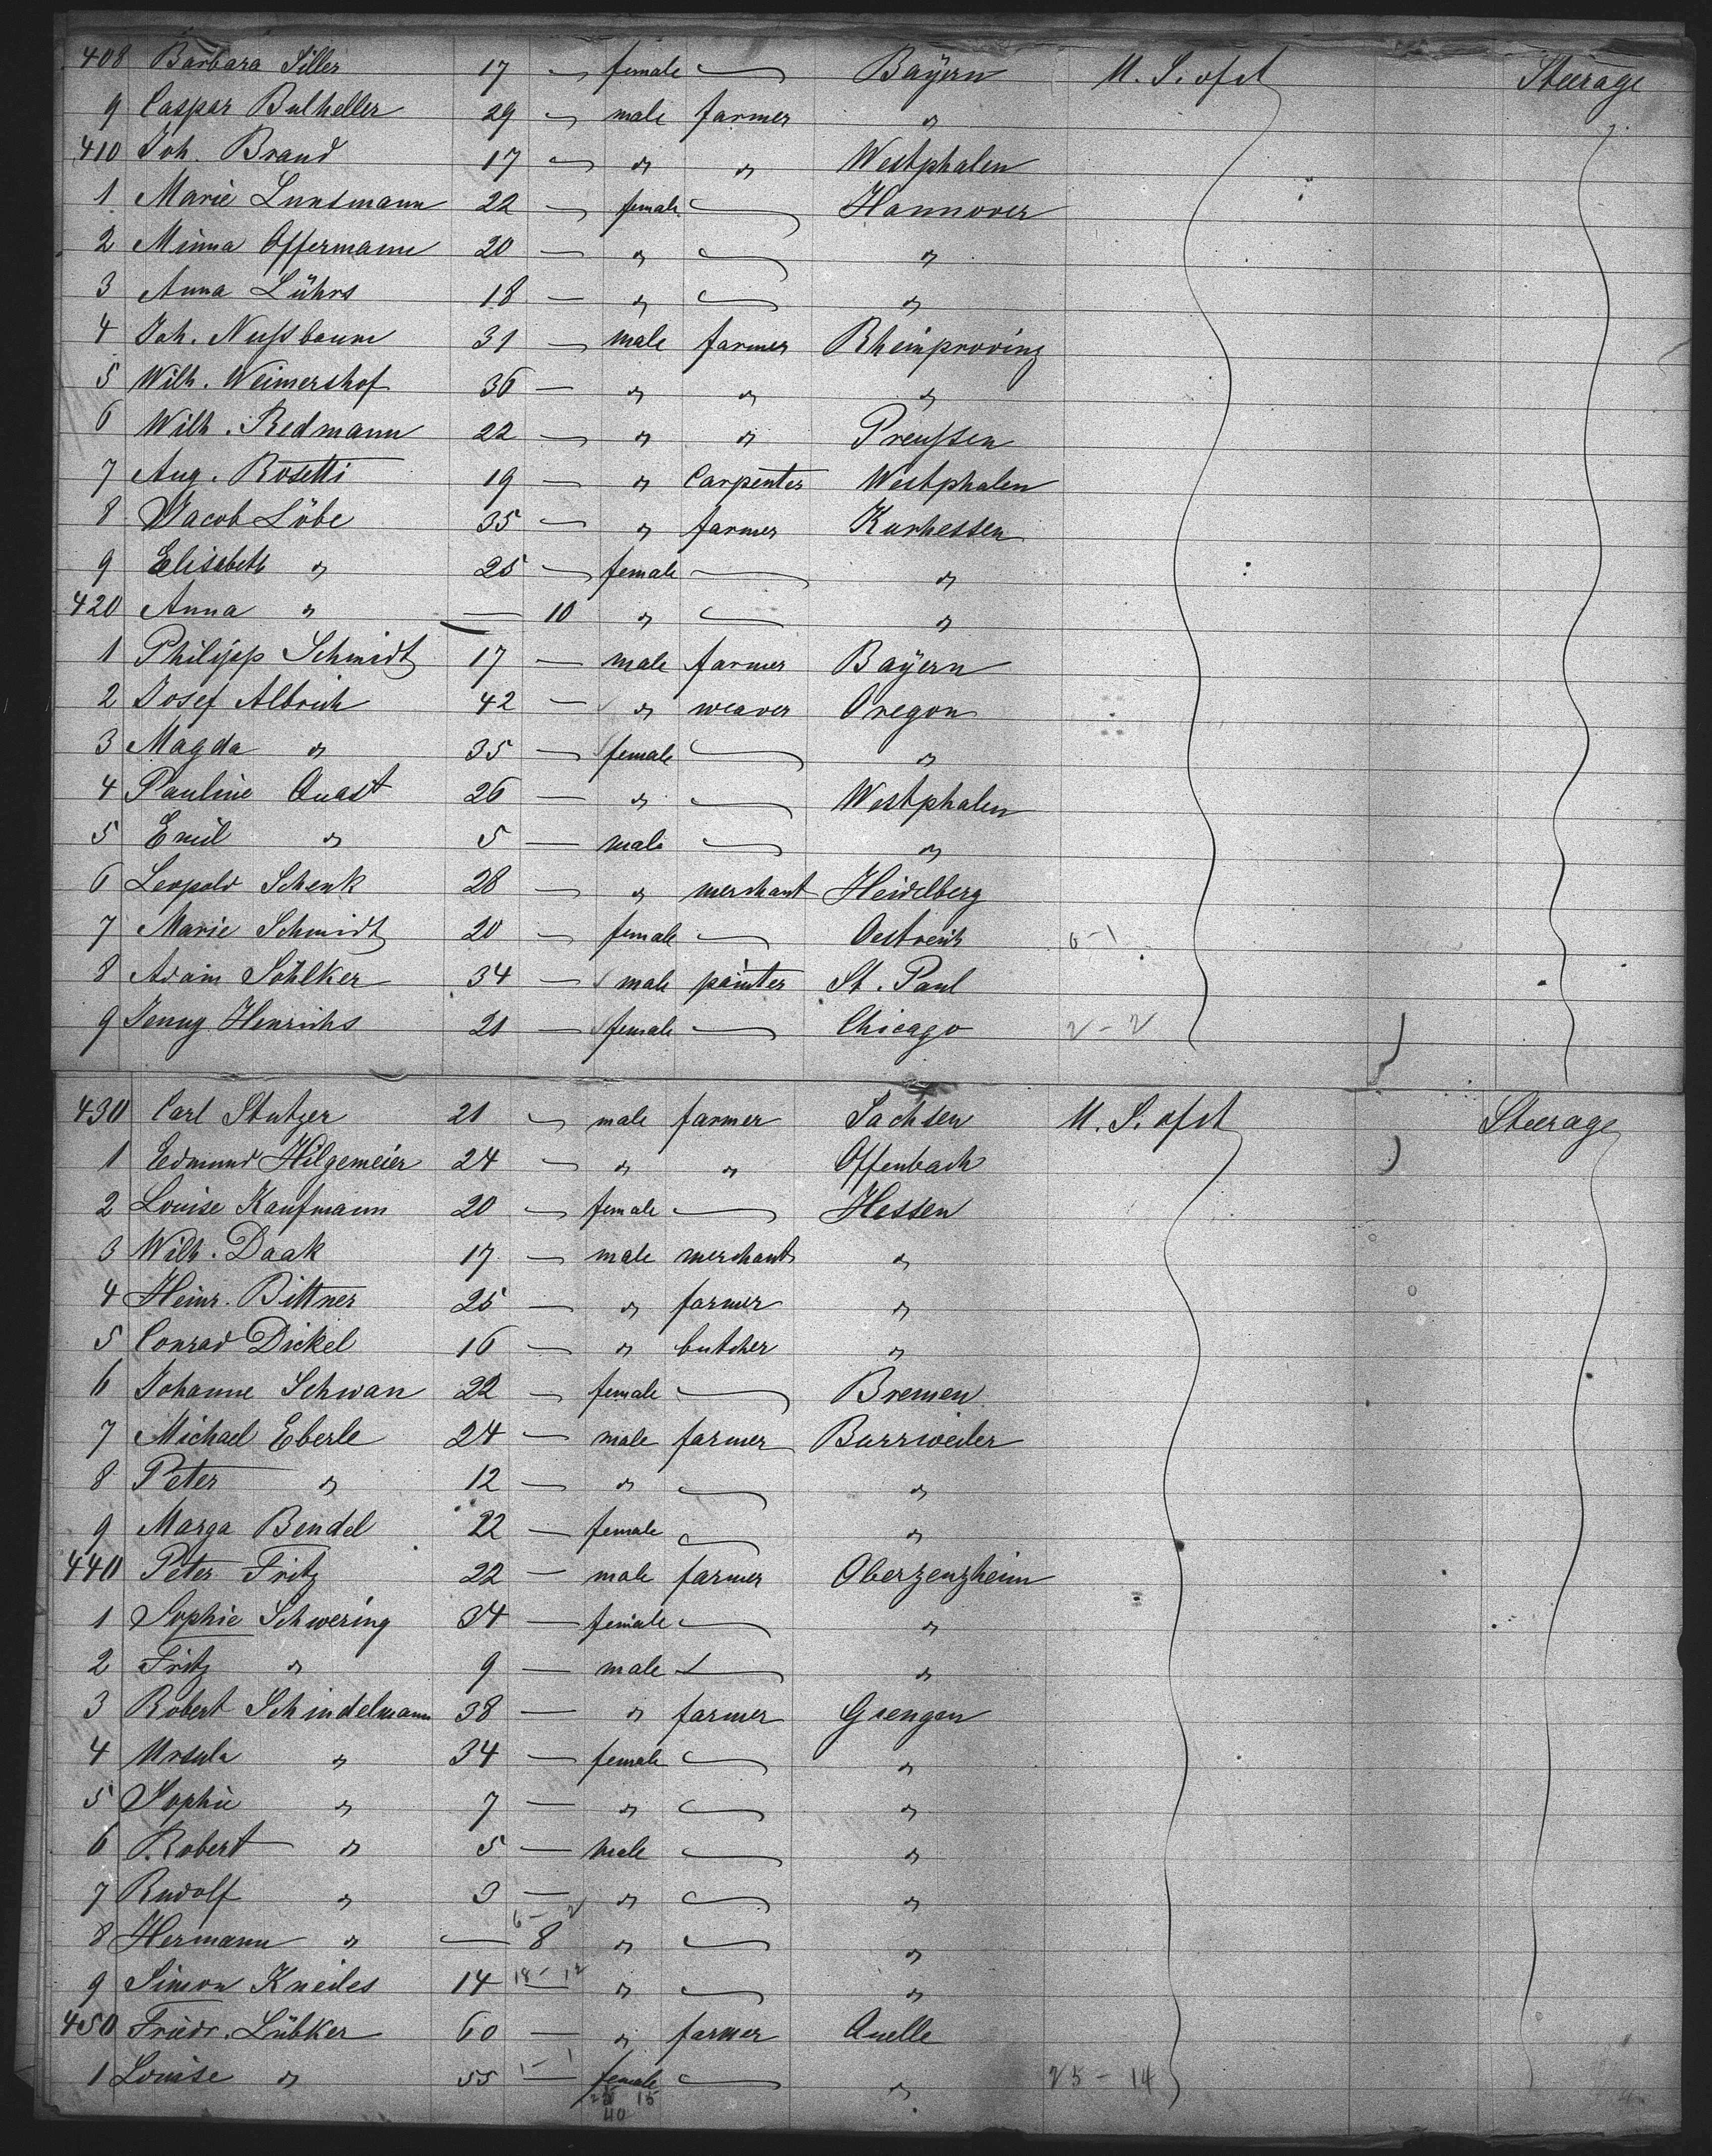 408 Barbara Siller 17 — female — Bayern U. S. of st Steerage
9 Caspar Bulheller 29 — male farmer "
410 Joh. Brand 17 — " " Westphalen
1 Marie Lunsmann 22 — female — Hannover
2 Minna Offermann 20 — " — "
3 Anna Lührs 18 — " — "
4 Joh. Nußbaum 31 — male farmer Rheinprovinz
5 Wilh. Weimershof 36 — " " "
6 Wilh. Redmann 22 — " " Preußen
7 Aug. Rosetti 19 — " Carpenter Westphalen
8 Jacob Löbe 35 — " farmer Kurhessen
9 Elisabeth " 25 — female — "
420 Anna " — 10 " — "
1 Philipp Schmidt 17 — male farmer Bayern
2 Josef Albrich 42 — " weaver Oregon
3 Magda " 35 — female — "
4 Pauline Quast 26 — " — Westphalen
5 Emil " 5 — male — "
6 Leopold Schenk 28 — " merchant Heidelberg
7 Marie Schmidt 20 — female — Oestreich 6-1
8 Adam Söhlker 34 — male painter St. Paul
9 Jenny Henrichs 21 — female — Chicago 2-2
430 Carl Stutzer 21 — male farmer Sachsen U. S. of st Steerage
1 Edmund Hilgemeier 24 — " " Offenbach
2 Louise Kaufmann 20 — female — Hessen
3 Wilh. Daak 17 — male merchant "
4 Heinr. Bittner 25 — " farmer "
5 Conrad Dickel 16 — " butcher "
6 Johanne Schwan 22 — female — Bremen
7 Michael Eberle 24 — male farmer Burrweiler
8 Peter " 12 — " — "
9 Marga Bendel 22 — female — "
440 Peter Fritz 22 — male farmer Oberzenzheim
1 Sophie Schwering 34 — female — "
2 Fritz " 9 — male — "
3 Robert Schindelmann 38 — " farmer Giengen
4 Ursula " 34 — female — "
5 Sophie " 7 — " — "
6 Robert " 5 — male — "
7 Rudolf " 3 — " — "
6-2
8 Hermann " — 8 " — "
18-12
9 Simon Kneiles 14 — " — "
450 Friedr. Lübker 60 — " farmer Quelle
1-1
1 Louise " 55 — female — " 25-14
25 15
40